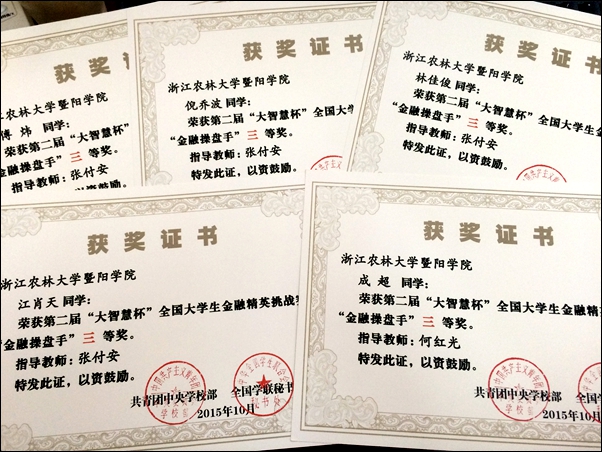 获奖证
浙江农林大学暨阳学院
傅 炜 同学:
荣获第二届“大智慧杯”
“金融操盘手” 三 等奖。
指导教师:张付安
获奖证书
浙江农林大学暨阳学院
倪乔波 同学:
荣获第二届“大智慧杯”全国大
“金融操盘手” 三 等奖。
指导教师:张付安
特发此证,以资鼓励。
获奖证书
浙江农林大学暨阳学院
林佳俊 同学:
荣获第二届“大智慧杯”全国大学生金
“金融操盘手” 三 等奖。
指导教师:张付安
特发此证,以资鼓励。
获奖证书
浙江农林大学暨阳学院
江肖天 同学:
荣获第二届“大智慧杯”全国大学生金融精英挑战
“金融操盘手” 三 等奖。
指导教师:张付安
特发此证,以资鼓励。
共青团中央学校部 全国学联秘书
2015年10月
获奖证书
浙江农林大学暨阳学院
成 超 同学:
荣获第二届“大智慧杯”全国大学生金融精
“金融操盘手” 三 等奖。
指导教师:何红光
特发此证,以资鼓励。
共青团中央学校部 全国学联
2015年10月